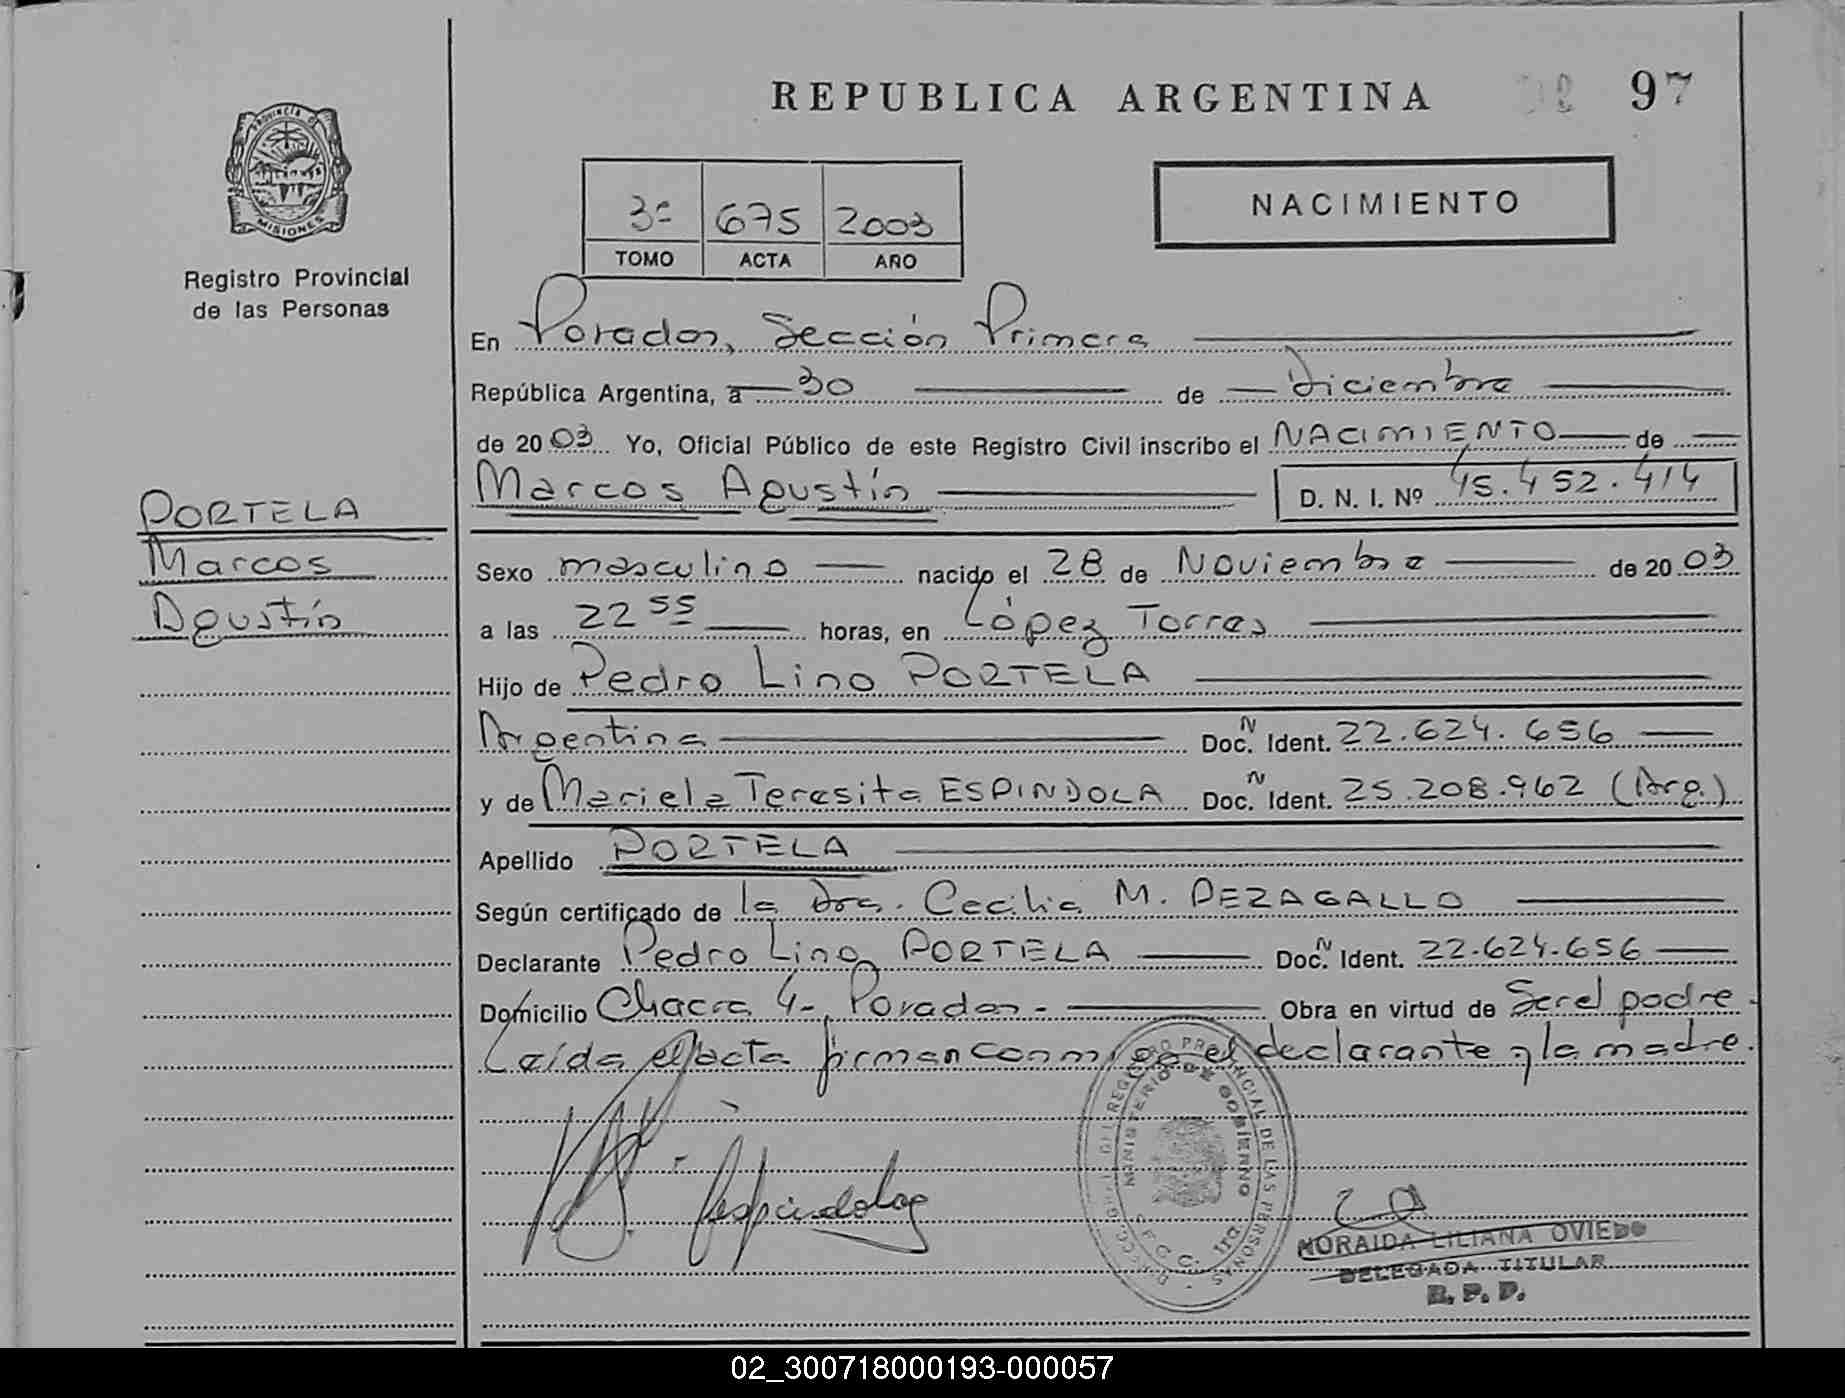 REPUBLICA ARGENTINA 97
PROVINCIA DE
MISIONES
Registro Provincial
de las Personas
NACIMIENTO
3º 675 2003
TOMO ACTA AÑO
En Posadas, Sección Primera
República Argentina, a 30 de Diciembre
de 2003 Yo, Oficial Público de este Registro Civil inscribo el NACIMIENTO de
Marcos Agustín D. N. I. Nº 45.452.414
PORTELA
Marcos
Agustín
Sexo masculino nacido el 28 de Noviembre de 2003
a las 22 55 horas, en López Torres
Hijo de Pedro Lino PORTELA
Argentina Doc. N Ident. 22.624.656
y de Mariela Teresita ESPINDOLA Doc. N Ident. 25.208.962 (Arg.)
Apellido PORTELA
Según certificado de la Dra. Cecilia M. PEZAGALLO
Declarante Pedro Lino PORTELA Doc. N Ident. 22.624.656
Domicilio Chacra 4- Posadas.- Obra en virtud de Ser el padre.
Leída el acta firman conmigo el declarante y la madre.
REGISTRO PROVINCIAL DE LAS PERSONAS
MINISTERIO DE GOBIERNO
NORAIDA LILIANA OVIEDO
DELEGADA TITULAR
R. P. P.
02_300718000193-000057